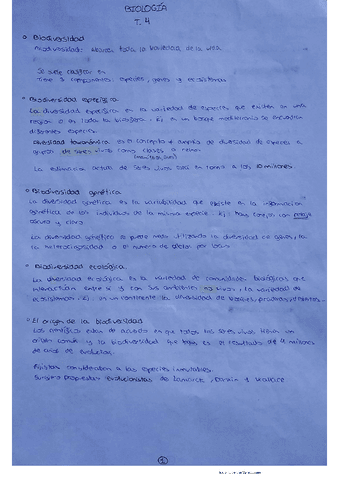 BIOLOGÍA
T. 4
Biodiversidad
Biodiversidad: toda la variedad de la vida.
Se suele
tiene 3 componentes: especies, genes y ecosistemas
Biodiversidad específica
La diversidad específica es la variedad de especies que existen en una
región o en toda la biosfera. Ej: en un bosque mediterráneo se encuentra
diferentes especies.
Diversidad taxonómica es el concepto + amplio de diversidad de especies a
grupos de seres vivos como clases o reinos
La estimación actual de seres vivos está en torno a los 10 millones
Biodiversidad genética
La diversidad genética es la variabilidad que existe en la información
genética de los individuos de la misma especie. Ej: hay conejos con pelaje
oscuro y claro
La diversidad genética se puede medir utilizando la diversidad de genes, la
la heterocigosidad o el número de alelos por locus
Biodiversidad ecológica
La diversidad ecológica es la variedad de comunidades biológicas que
interactúan entre sí y con sus ambientes no vivos, la variedad de
ecosistemas. Ej: en un continente la diversidad de bosques, praderas, diferentes
El origen de la biodiversidad
Los científicos están de acuerdo en que todos los seres vivos tienen un
origen común y la biodiversidad que hay es el resultado de 4 millones
de años de evolución.
Fijistas consideraban a las especies inmutables.
Surgieron propuestas evolucionistas de Lamarck, Darwin y Wallace
1